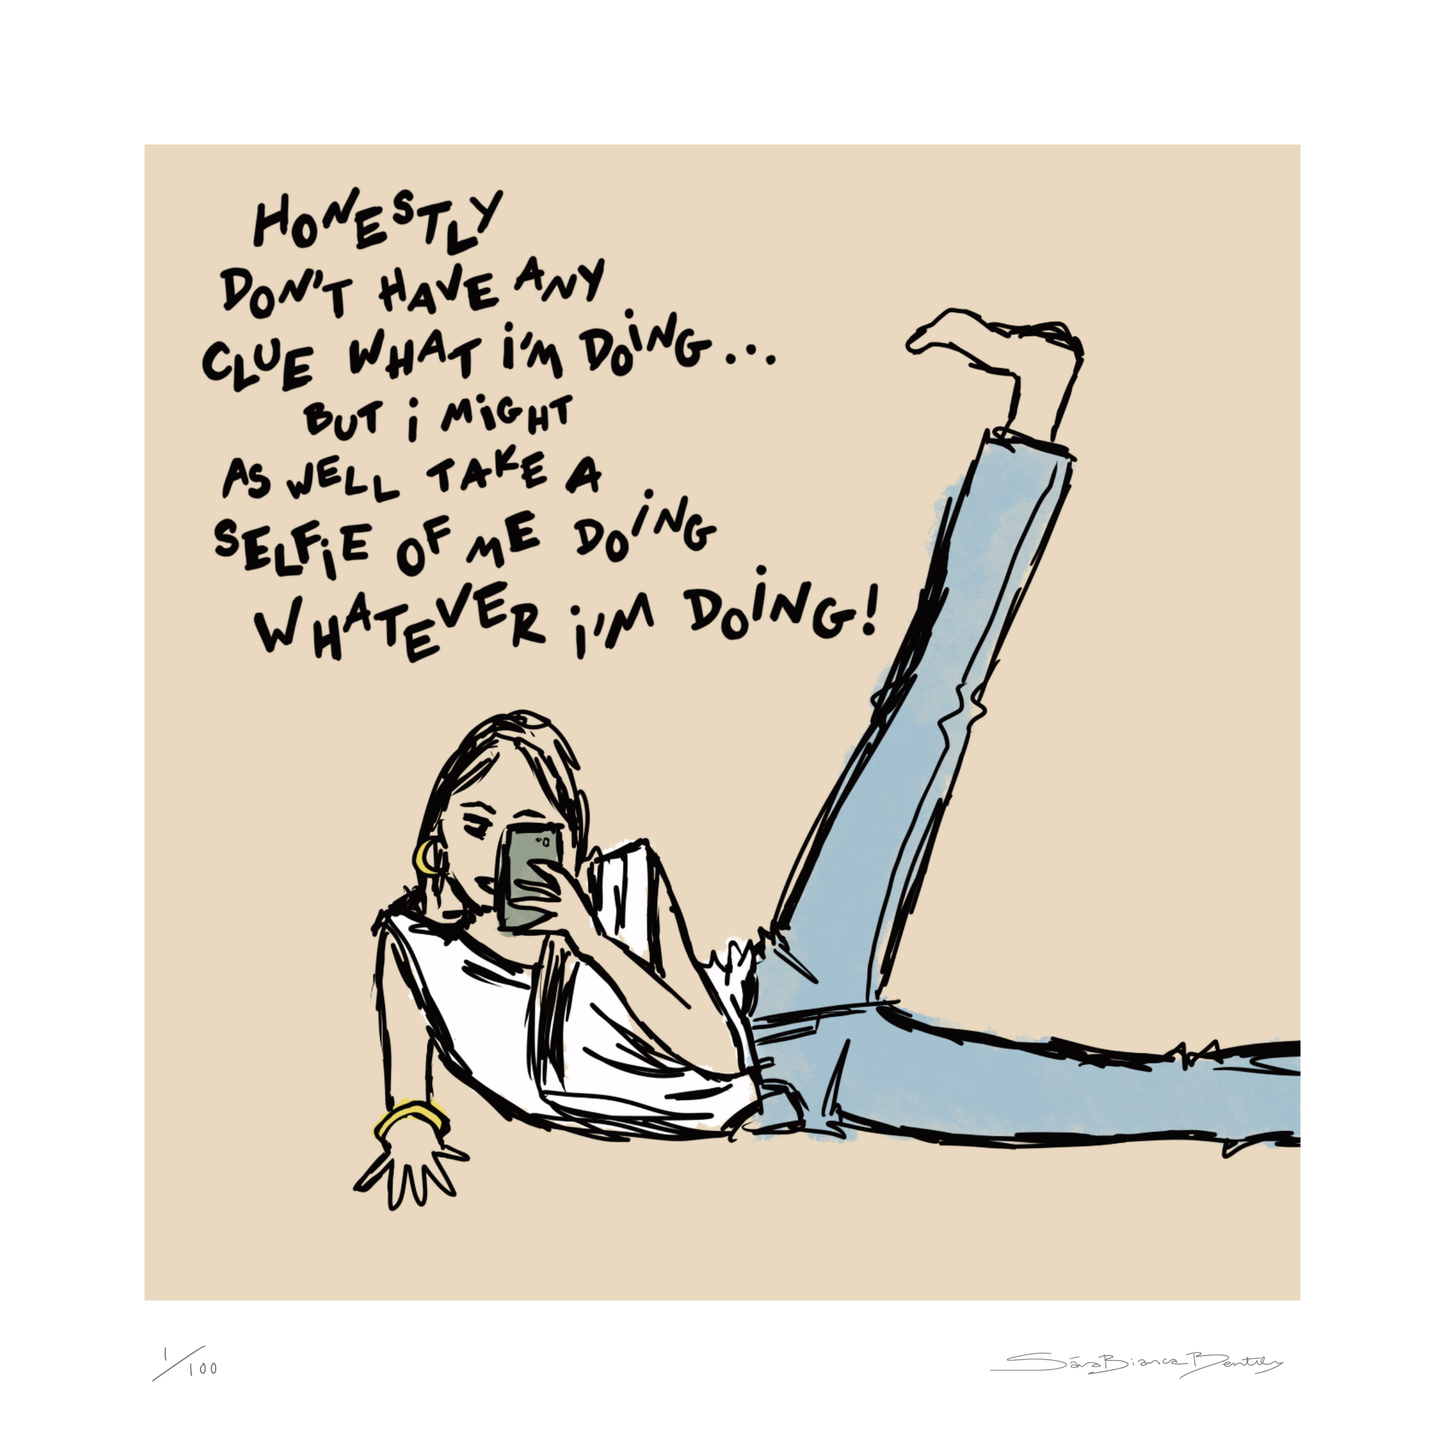 HONESTLY
DON'T HAVE ANY
CLUE WHAT i'M DOiNG...
BUT i MiGHT
AS WELL TAKE A
SELFiE OF ME DOiNG
WHATEVER i'M DOiNG!
1/100
SáraBianca Bentley